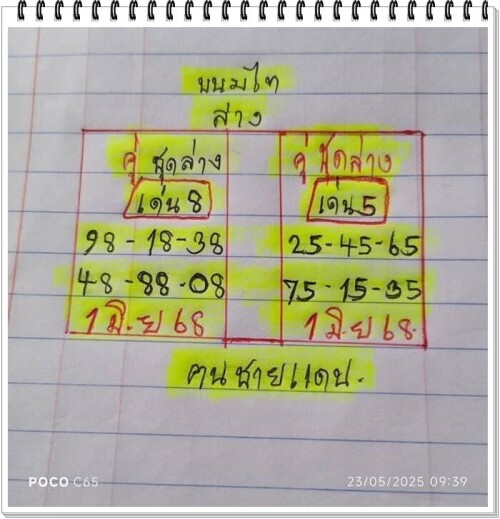 ขนมไท
ล่าง
คู่ ชุดล่าง
เด่น 8
98 - 18 - 38
48 - 88 - 08
1 มิ.ย 68
คู่ ชุดล่าง
เด่น 5
25 - 45 - 65
75 - 15 - 35
1 มิ.ย 68.
คนชายแดน.
POCO C65
23/05/2025 09:39